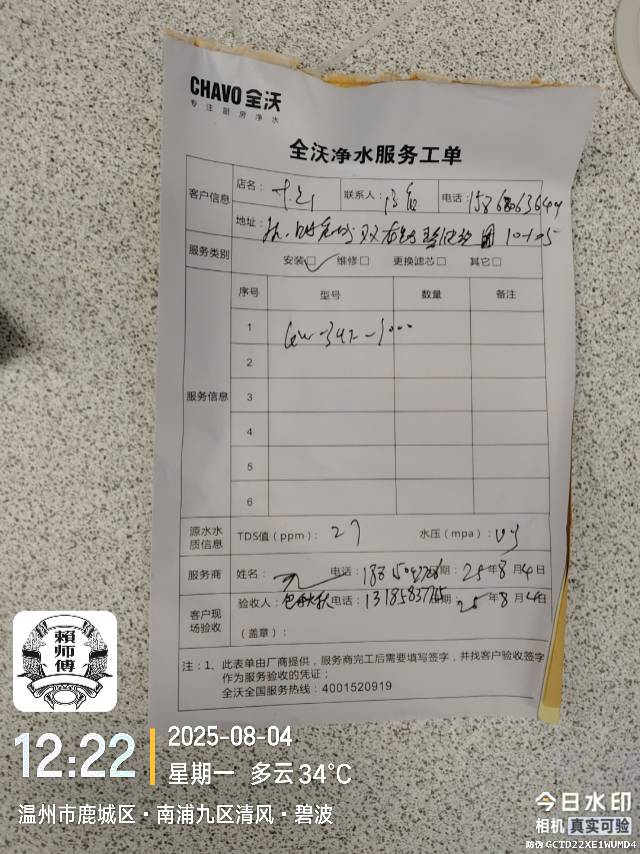 CHAVO 全沃
专注厨房净水
全沃净水服务工单
客户信息
店名:
联系人:
电话:
地址:
服务类别
安装☑ 维修□ 更换滤芯□ 其它□
服务信息
序号 型号 数量 备注
1
2
3
4
5
6
源水水质信息
TDS值(ppm): 27 水压(mpa):
服务商
姓名: 电话: 25年8月4日
客户现场验收
验收人: 电话: 25年8月4日
(盖章):
注:1、此表单由厂商提供,服务商完工后需要填写签字,并找客户验收签字
作为服务验收的凭证;
全沃全国服务热线:4001520919
賴师傅
12:22
2025-08-04
星期一 多云 34℃
温州市鹿城区·南浦九区清风·碧波
今日水印
相机 真实可验
防伪 GCTD22XE1WUMD4